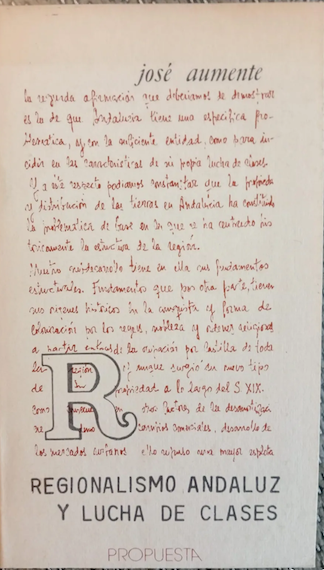 josé aumente
la segunda afirmación que deberíamos de demostrar
es la de que Andalucía tiene una específica pro-
blemática, y con la suficiente entidad, como para in-
cidir en las características de su propia lucha de clases.
Y a este respecto podíamos constatar que la profunda
redistribución de las tierras en Andalucía ha constituido
la problemática de base en la que se ha centrado his-
tóricamente la estructura de la región.
Mucho tiene en ella sus fundamentos
estructurales. Fundamentos que por otra parte, tienen
sus orígenes históricos en la conquista y forma de
colonización por los reyes, nobleza y órdenes
a partir de la por Castilla de toda
región, y aunque surgió un nuevo tipo
de propiedad a lo largo del S. XIX.
como de la
comerciales, desarrollo de
los mercados ello repuso una mayor
R
REGIONALISMO ANDALUZ
Y LUCHA DE CLASES
PROPUESTA